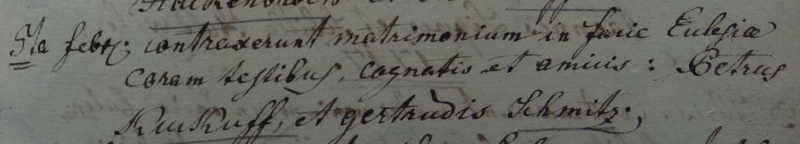 5ta febr: contraxerunt matrimonium in facie Eclesiæ
coram testibus, cognatis et amicis: Petrus
KucKuff, et gertrudis Schmitz,